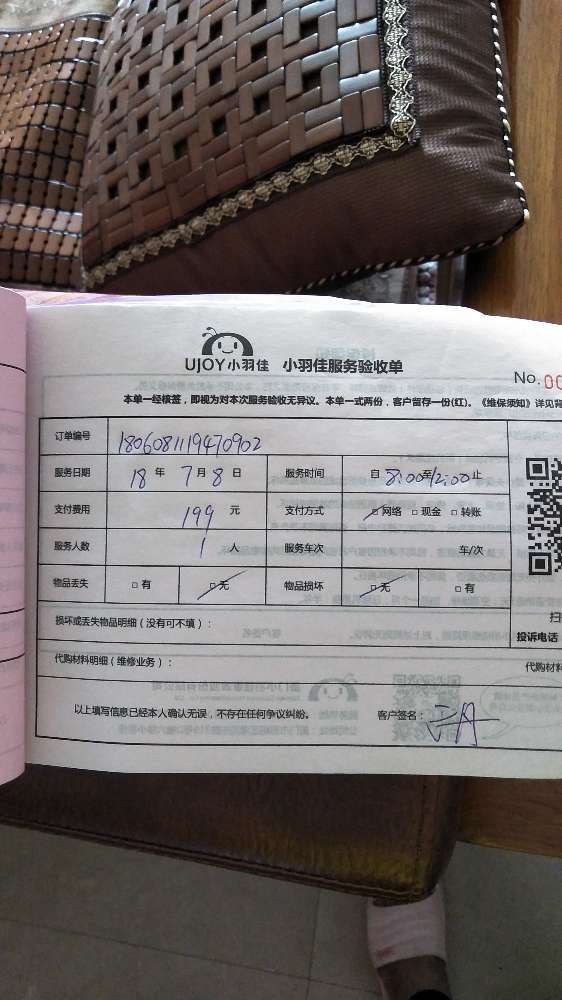 UJOY小羽佳 小羽佳服务验收单
No.00
本单一经核签，即视为对本次服务验收无异议。本单一式两份，客户留存一份(红)。《维保须知》详见背
订单编号 1806081119470902
服务日期 18 年 7 月 8 日 服务时间 自 8:00 至 12:00 止
支付费用 199 元 支付方式 □网络 □现金 □转账
服务人数 1 人 服务车次 车/次
物品丢失 □有 □无 物品损坏 □无 □有
损坏或丢失物品明细（没有可不填）：
扫
投诉电话
代购材料明细（维修业务）： 代购材料
以上填写信息已经本人确认无误，不存在任何争议纠纷。 客户签名：